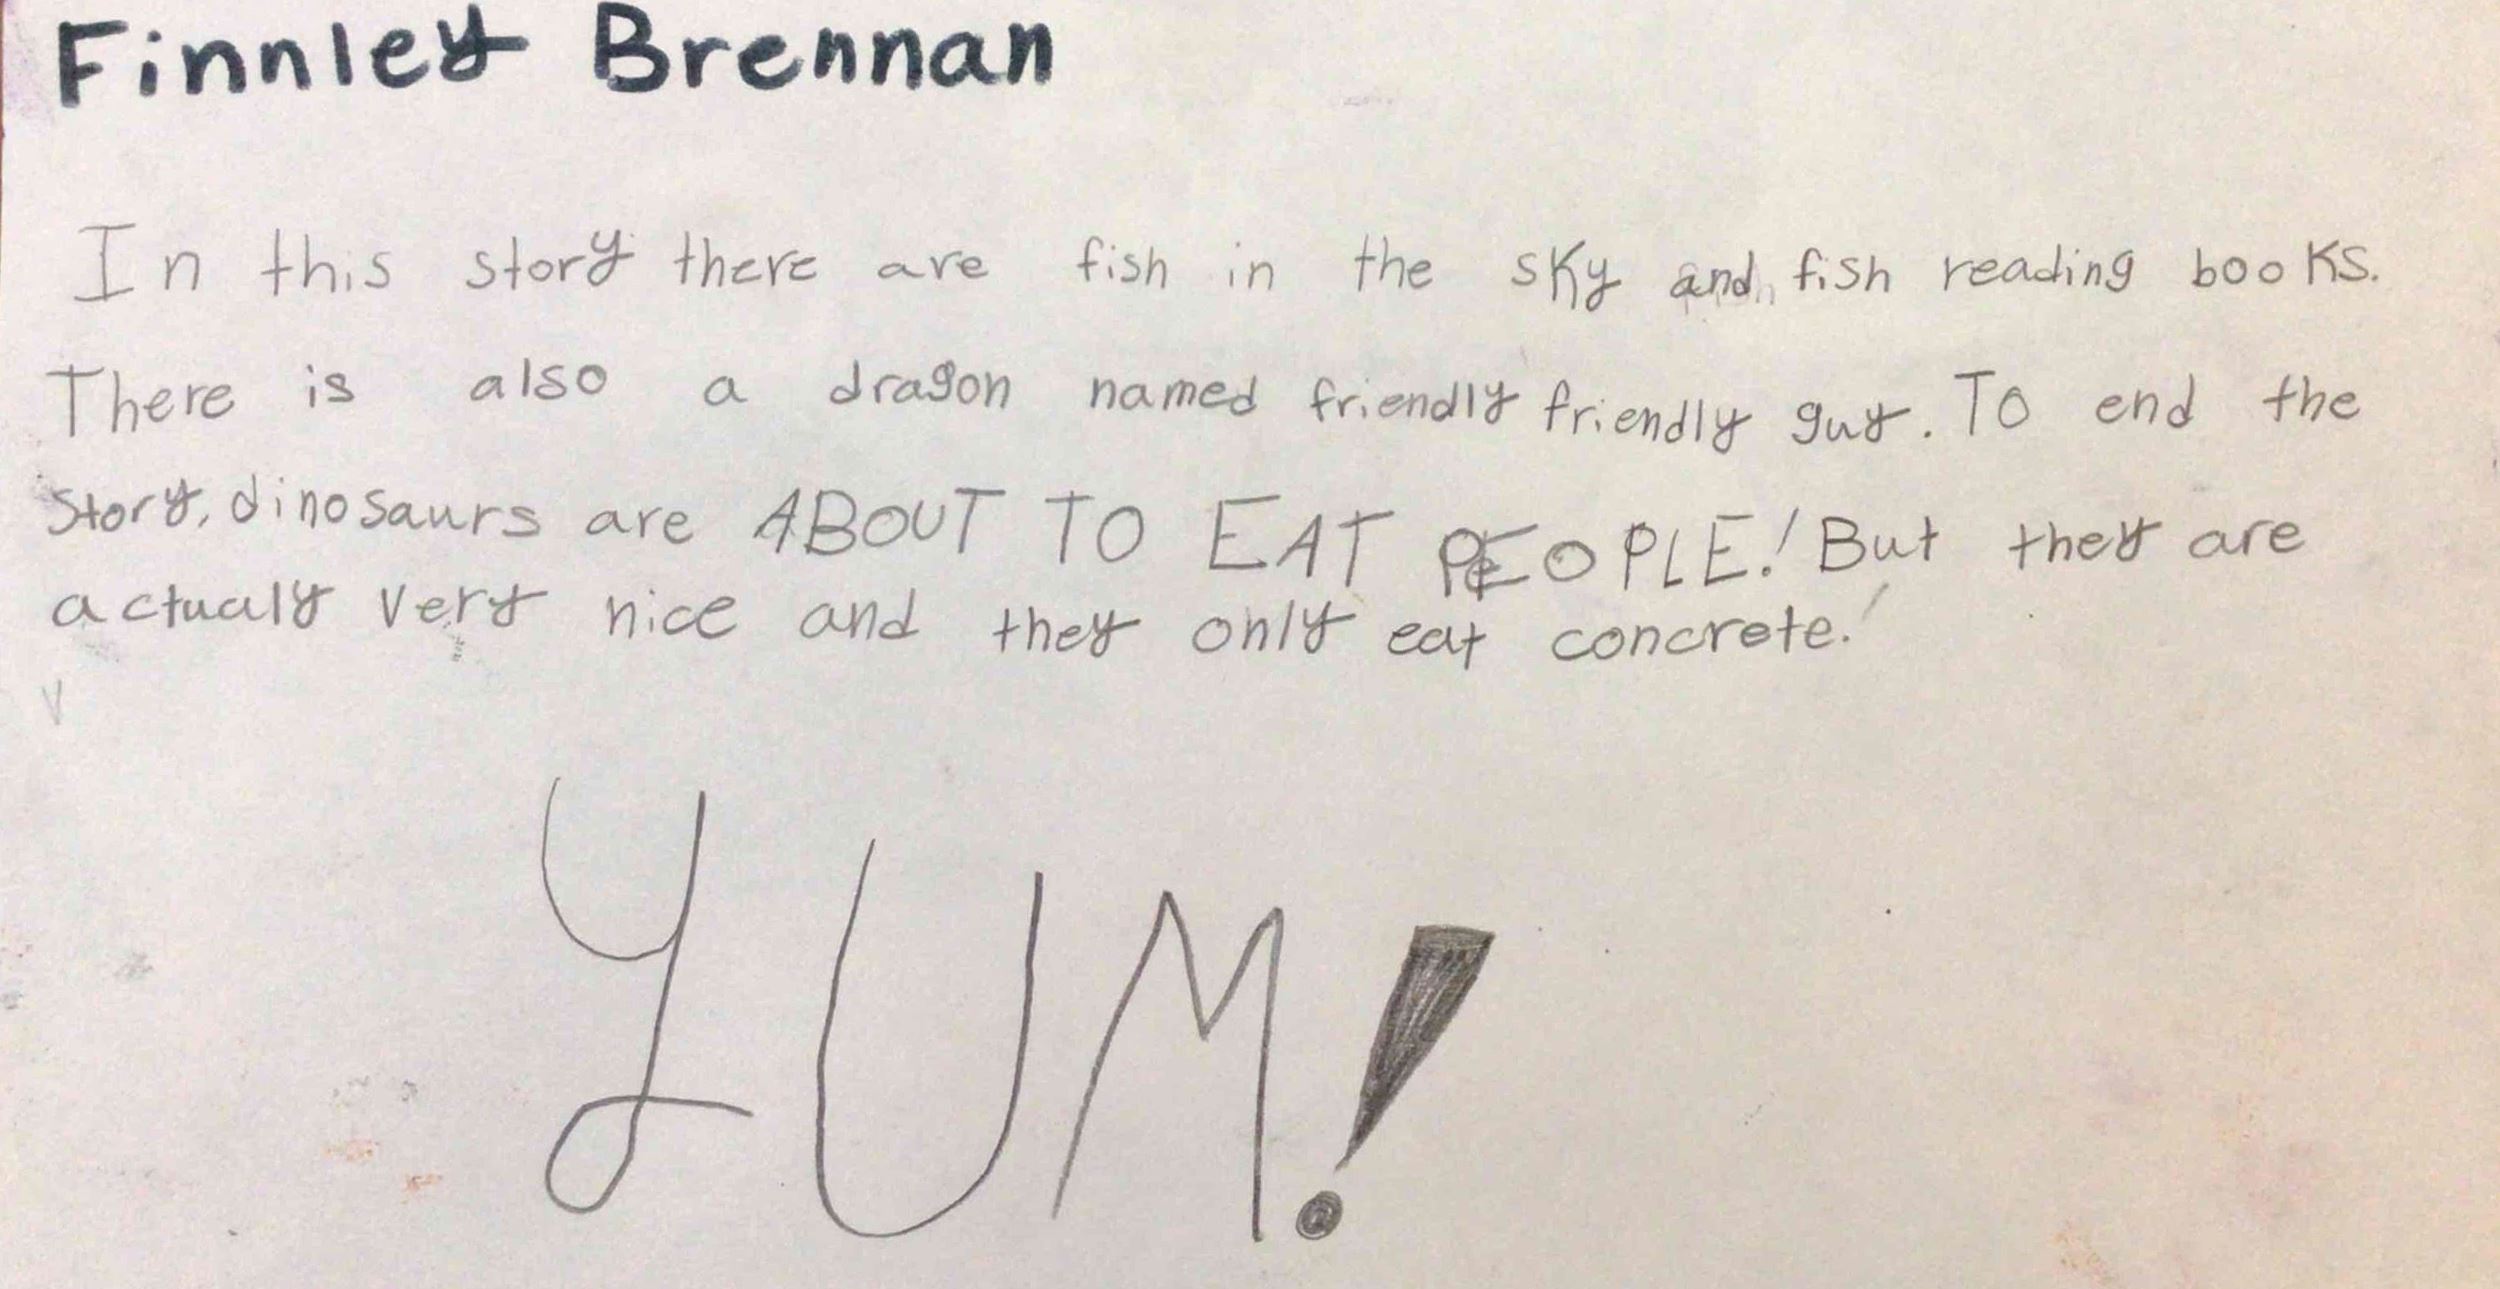 Finnley Brennan
In this story there are fish in the sky and fish reading books.
There is also a dragon named friendly friendly guy. To end the
story, dinosaurs are ABOUT TO EAT PEOPLE! But they are
actualy very nice and they only eat concrete!
YUM!